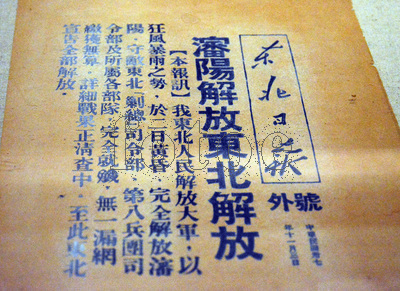 东北日報
號外
中華民國卅七
年十一月
瀋陽解放東北解放
【本報訊】我東北人民解放大軍，以
狂風暴雨之勢，於二日黃昏，完全解放瀋
陽，守敵東北「剿總」司令部、第八兵團司
令部及所屬各部隊，完全就殲，無一漏網
繳獲無算，詳細戰果正清查中。至此東北
宣告全部解放。